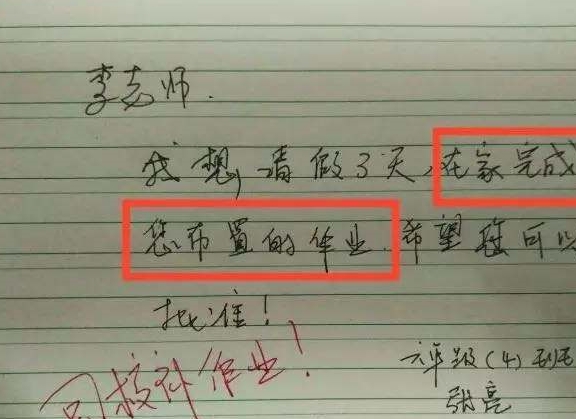 李老师.
我想,请假3天,在家完成
您布置的作业.希望您可以
批准!
六年级(4)
张亮
回校补作业!